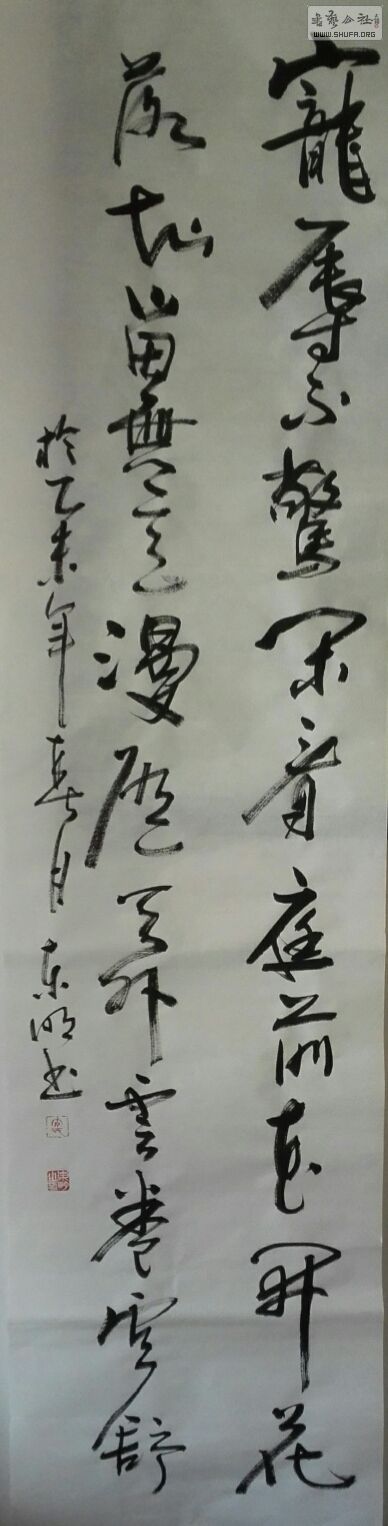 寵辱不驚閑看庭前花開花
落去留無意漫随天外雲卷雲舒
於乙未年春月東明書
書藝公社
WWW.SHUFA.ORG